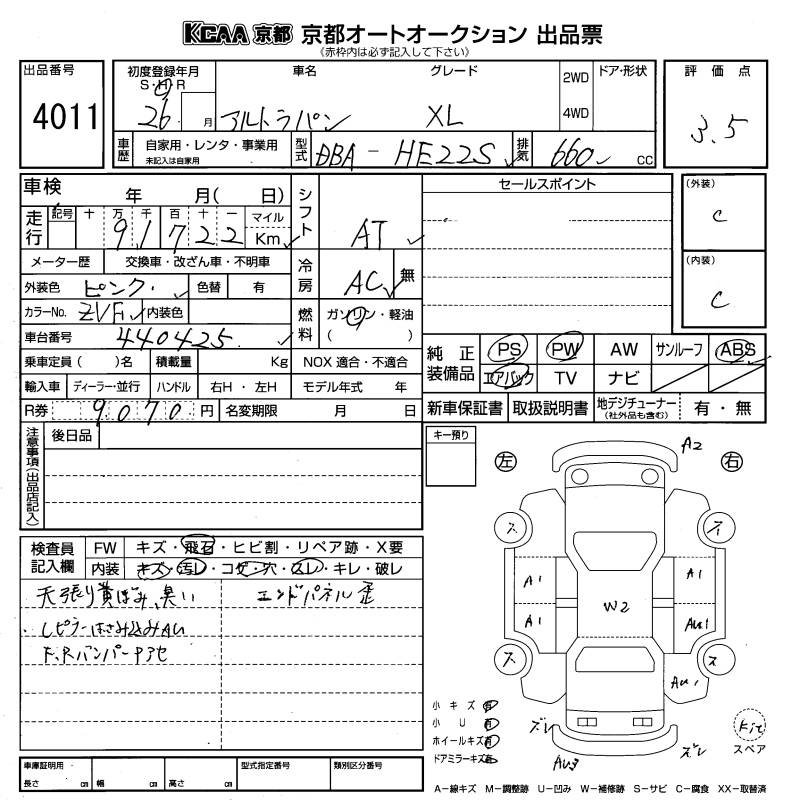 KCAA 京都 京都オートオークション 出品票
(赤枠内は必ず記入して下さい)
出品番号
4011
初度登録年月
S・H・R
26 月
車名
アルトラパン
グレード
XL
2WD
4WD
ドア・形状
評価点
3.5
車歴
自家用・レンタ・事業用
未記入は自家用
型式
DBA-HE22S
排気
660 cc
車検 年 月( 日)
走行
記号 十 万 千 百 十 一
91722
マイル
Km
メーター歴 交換車・改ざん車・不明車
外装色 ピンク 色替 有
カラーNo. ZVF 内装色
車台番号 440425
乗車定員( )名 積載量 Kg
輸入車 ディーラー・並行 ハンドル 右H・左H
R券 9070 円 名変期限 月 日
シフト AT
冷房 AC 無
燃料 ガソリン・軽油
( )
NOX 適合・不適合
モデル年式 年
セールスポイント
(外装)
C
(内装)
C
純正装備品
PS PW AW サンルーフ ABS
エアバック TV ナビ
新車保証書 取扱説明書 地デジチューナー
(社外品も含む)
有・無
注意事項(出品店記入)
後日品
キー預り
検査員記入欄
FW キズ・飛石・ヒビ割・リペア跡・X要
内装 キズ・汚レ・コゲ・穴・スレ・キレ・破レ
天張り黄ばみ、臭い
エンドパネル歪
Lピラーはさみ込みAU
F,Rバンパー下地
左
右
A2
ス
ス
A1
A1
A1
AU1
W2
ス
ス
AU1
ズレ
AU3
ズレ
小キズ 有
小U 有
ホイールキズ 有
ドアミラーキズ 有
スペア
車庫証明用
長さ cm 幅 cm 高さ cm
型式指定番号
類別区分番号
A-線キズ M-調整跡 U-凹み W-補修跡 S-サビ C-腐食 XX-取替済